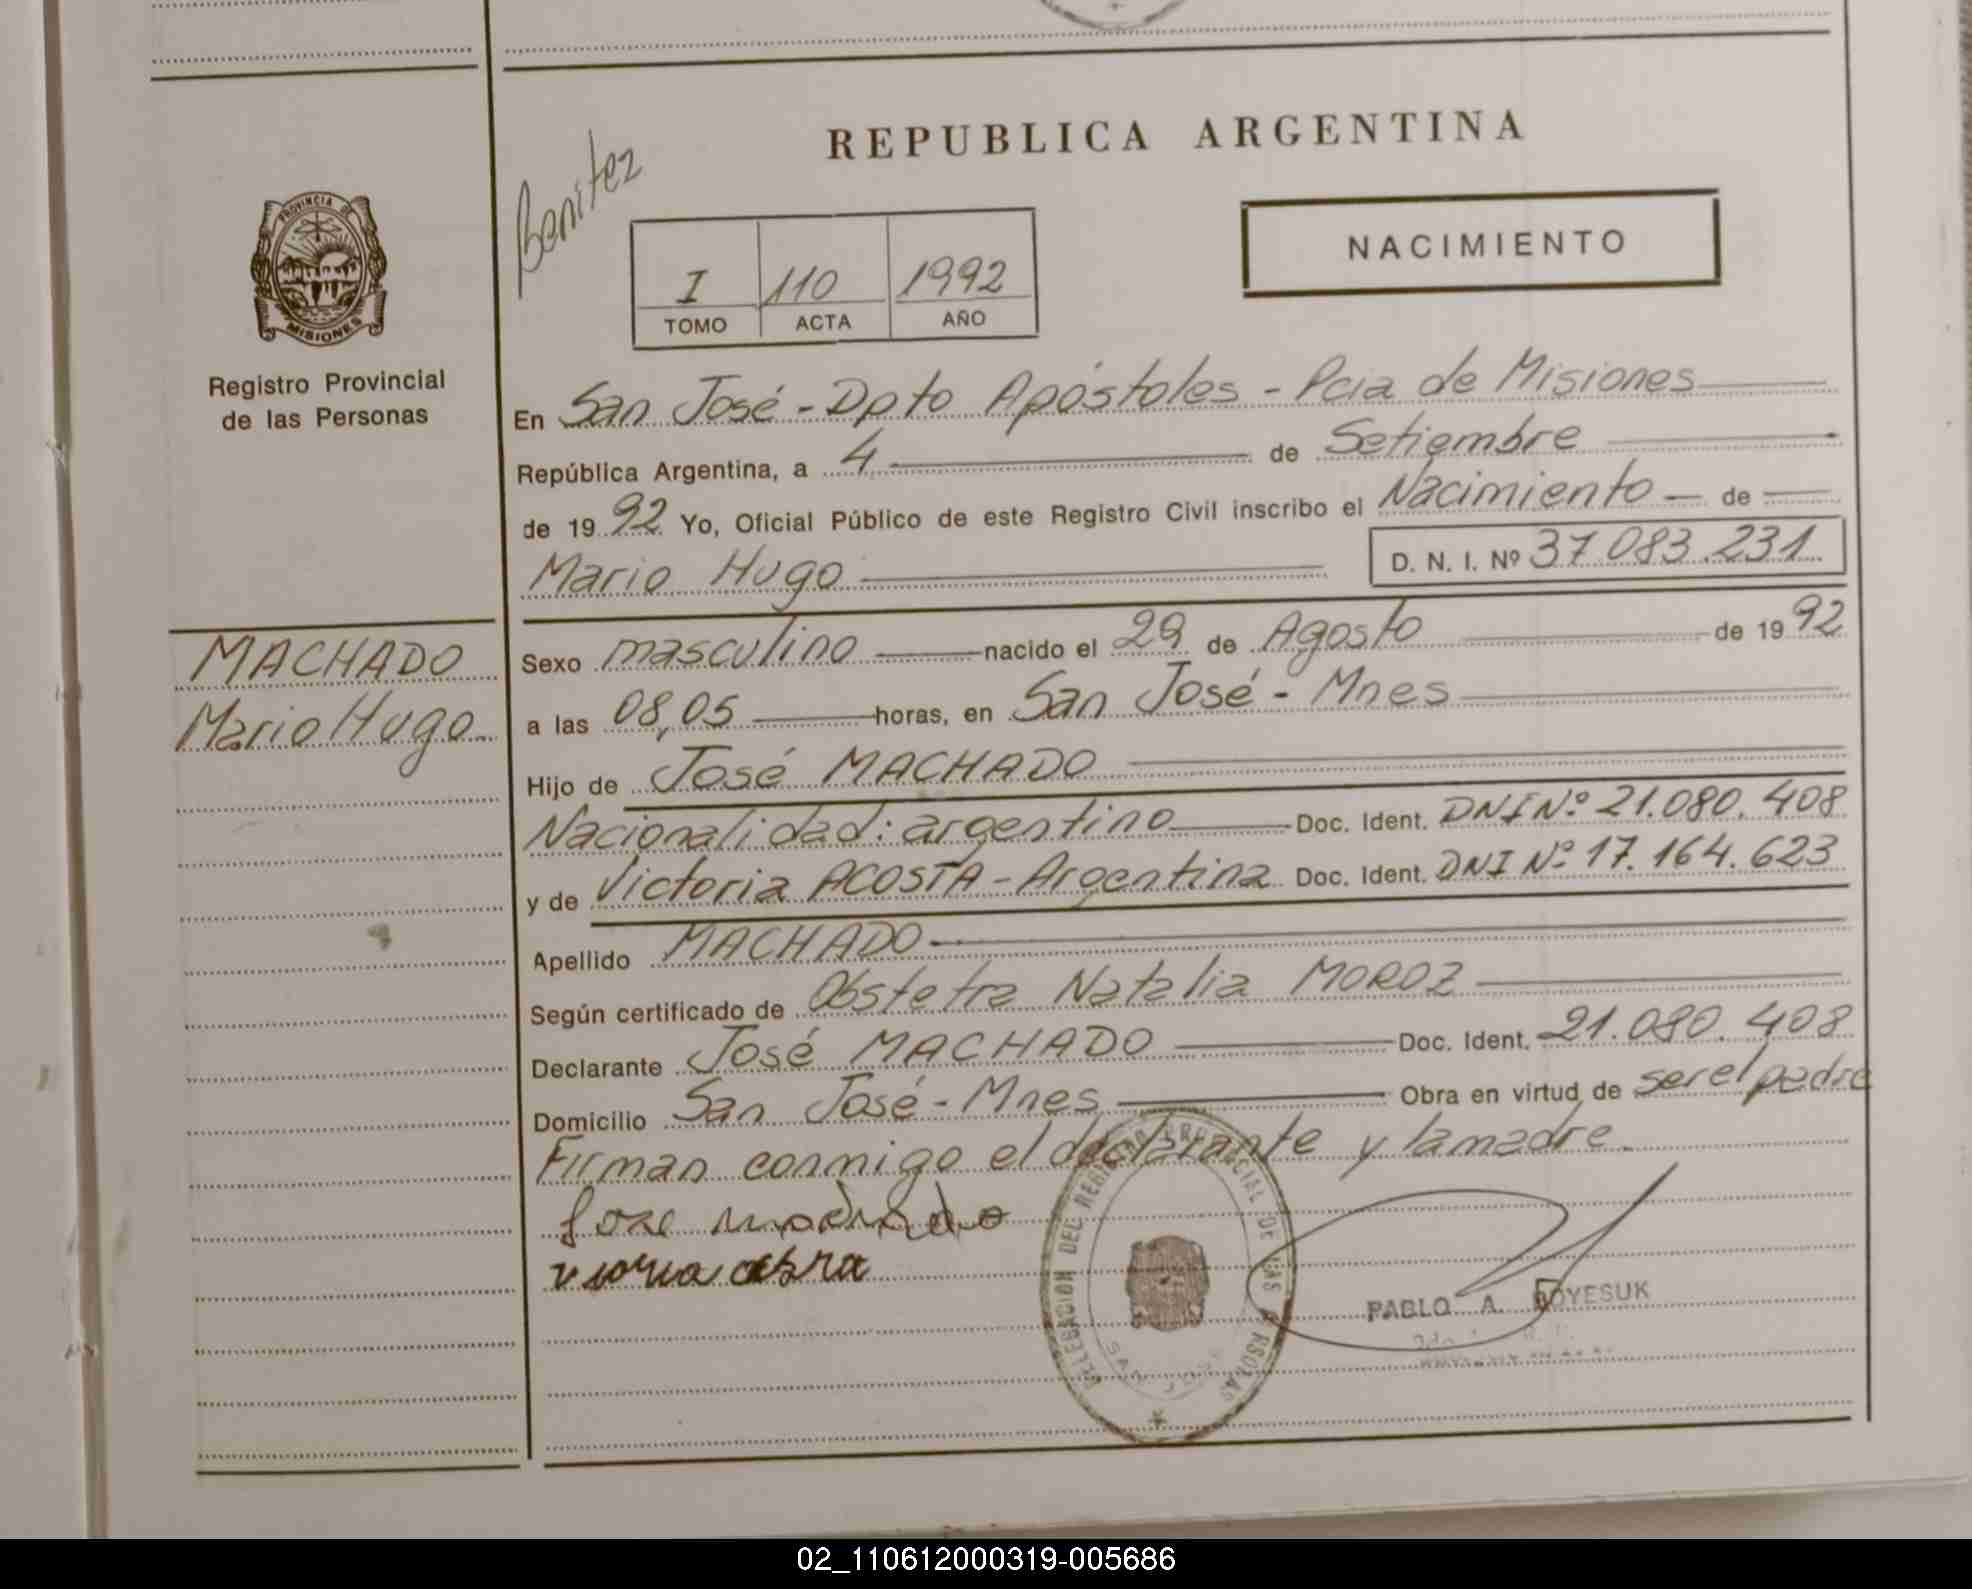 REPUBLICA ARGENTINA
Benitez
NACIMIENTO
I 110 1992
TOMO ACTA AÑO
PROVINCIA DE
MISIONES
Registro Provincial
de las Personas
En San José - Dpto Apóstoles - Pcia de Misiones
República Argentina, a 4 de Setiembre
de 19 92 Yo, Oficial Público de este Registro Civil inscribo el Nacimiento de
Mario Hugo D. N. I. Nº 37.083.231
MACHADO
Mario Hugo
Sexo masculino nacido el 29 de Agosto de 19 92
a las 08,05 horas, en San José - Mnes
Hijo de José MACHADO
Nacionalidad: argentino Doc. Ident. DNI Nº 21.080.408
y de Victoria ACOSTA - Argentina Doc. Ident. DNI Nº 17.164.623
Apellido MACHADO
Según certificado de Obstetra Natalia MOROZ
Declarante José MACHADO Doc. Ident. 21.080.408
Domicilio San José - Mnes Obra en virtud de ser el padre
Firman conmigo el declarante y la madre.
Jose machado
DELEGACION DEL REGISTRO PROVINCIAL DE LAS PERSONAS
SAN JOSE
PABLO A. BOYESUK
02_110612000319-005686